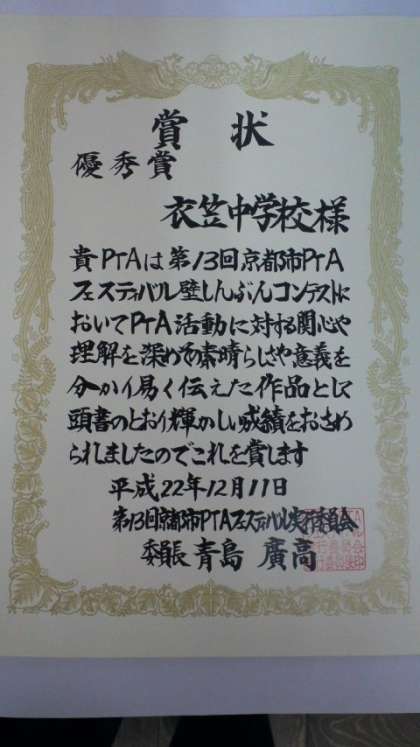 賞状
優秀賞
衣笠中学校様
貴PTAは第13回京都市PTA
フェスティバル壁しんぶんコンテストに
おいてPTA活動に対する関心や
理解を深めその素晴らしさや意義を
分かり易く伝えた作品として
頭書のとおり輝かしい成績をおさめ
られましたのでこれを賞します
平成22年12月11日
第13回京都市PTAフェスティバル実行委員会
委員長 青島 廣高